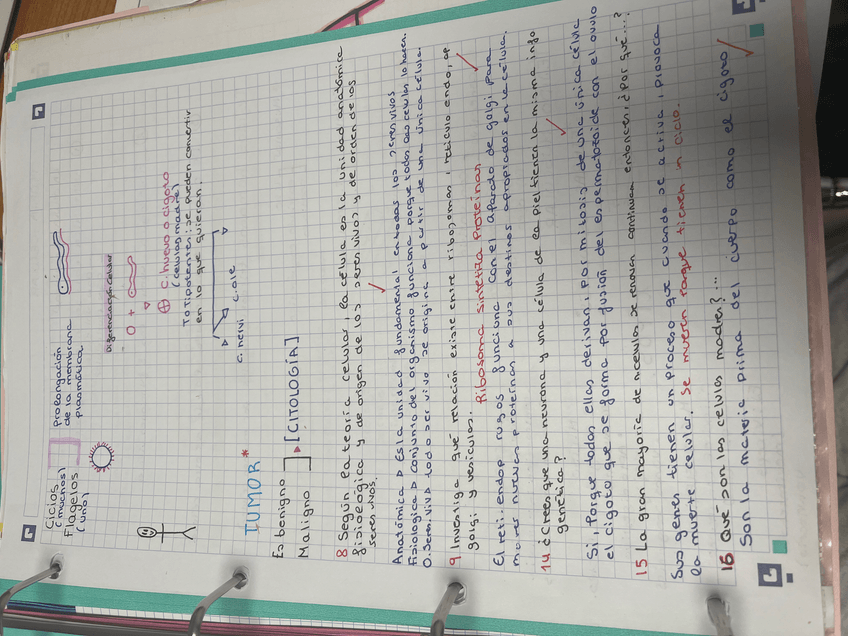 Ciclos
(muchos)
Flagelos
(uno)
prolongación
de la membrana
plasmática
Diferenciación celular
O +
c. huevo o cigoto
(celulas madre)
Totipotentes: se pueden convertir
en lo que quieran.
c. nervi c. ole
TUMOR*
Es benigno
Maligno
[CITOLOGÍA]
8 Según la teoría celular, la célula es la unidad anatómica
fisiológica y de origen de los seres vivos y de orden de los
seres vivos.
Anatómica → Es la unidad fundamental en todos los seres vivos
Fisiologica → conjunto del organismo funciona porque todas sus celulas lo hacen.
O. Seres. viv → todo ser vivo se origina a partir de una unica célula.
9 Investiga qué relación existe entre ribosomas, reticulo endo, ap
golgi y vesiculas. Ribosoma sintetiza Proteinas
El reti. endop rugos funciona con el aparato de golgi para
mover nuevas proteinas a sus destinos apropiados en la célula.
14 ¿Crees que una neurona y una célula de la piel tienen la misma info
genética?
Si, Porque todas ellas derivan, por mitosis, de una unica célula
el cigoto que se forma por fusión del espermatozoide con el ovulo
15 La gran mayoria de nuestras se renovan continuam entonces, ¿Por qué...?
Sus genes tienen un proceso que cuando se activa, provoca
la muerte celular. Se mueren porque tienen un ciclo.
16 Qué son las celulas madres?...
Son la materia prima del cuerpo como el cigoto